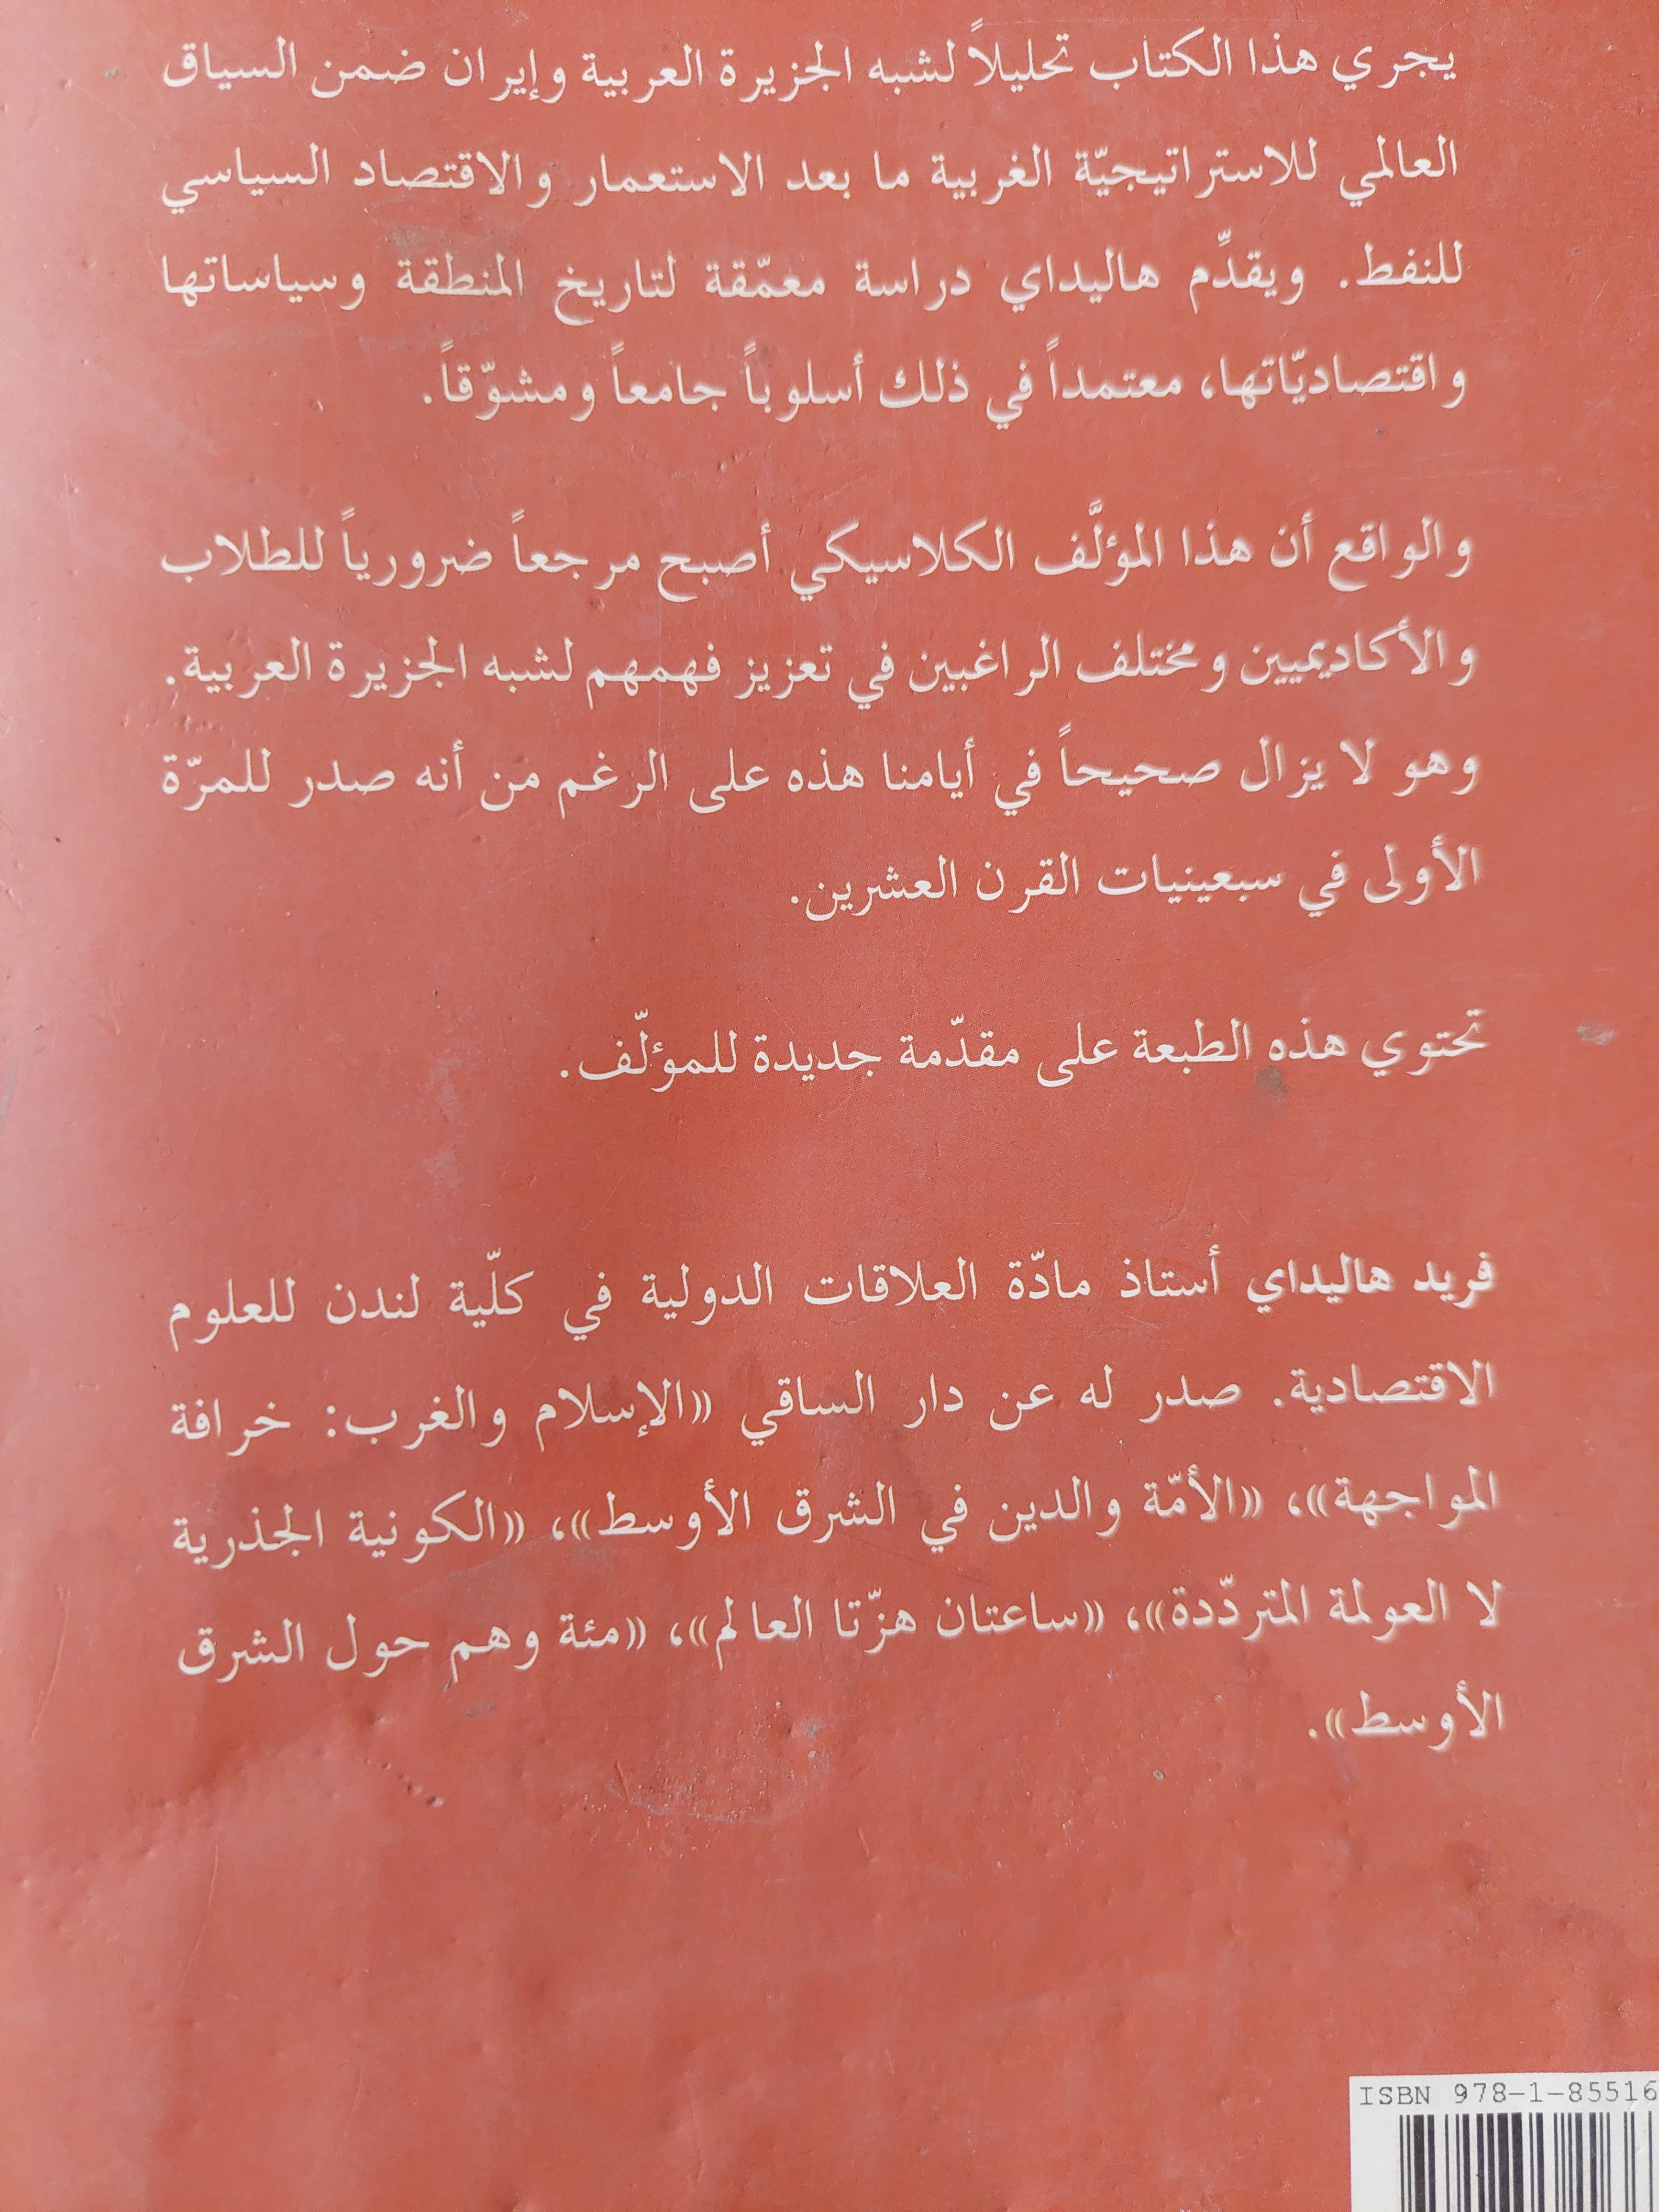 يجري هذا الكتاب تحليلاً لشبه الجزيرة العربية وإيران ضمن السياق
العالمي للاستراتيجيّة الغربية ما بعد الاستعمار والاقتصاد السياسي
للنفط. ويقدِّم هاليداي دراسة معمّقة لتاريخ المنطقة وسياساتها
واقتصاديّاتها، معتمداً في ذلك أسلوباً جامعاً ومشوّقاً.
والواقع أن هذا المؤلَّف الكلاسيكي أصبح مرجعاً ضرورياً للطلاب
والأكاديميين ومختلف الراغبين في تعزيز فهمهم لشبه الجزيرة العربية.
وهو لا يزال صحيحاً في أيامنا هذه على الرغم من أنه صدر للمرّة
الأولى في سبعينيات القرن العشرين.
تحتوي هذه الطبعة على مقدّمة جديدة للمؤلّف.
فريد هاليداي أستاذ مادّة العلاقات الدولية في كلّية لندن للعلوم
الاقتصادية. صدر له عن دار الساقي «الإسلام والغرب: خرافة
المواجهة»، «الأمّة والدين في الشرق الأوسط»، «الكونية الجذرية
لا العولمة المتردّدة»، «ساعتان هزّتا العالم»، «مئة وهم حول الشرق
الأوسط».
ISBN 978-1-85516